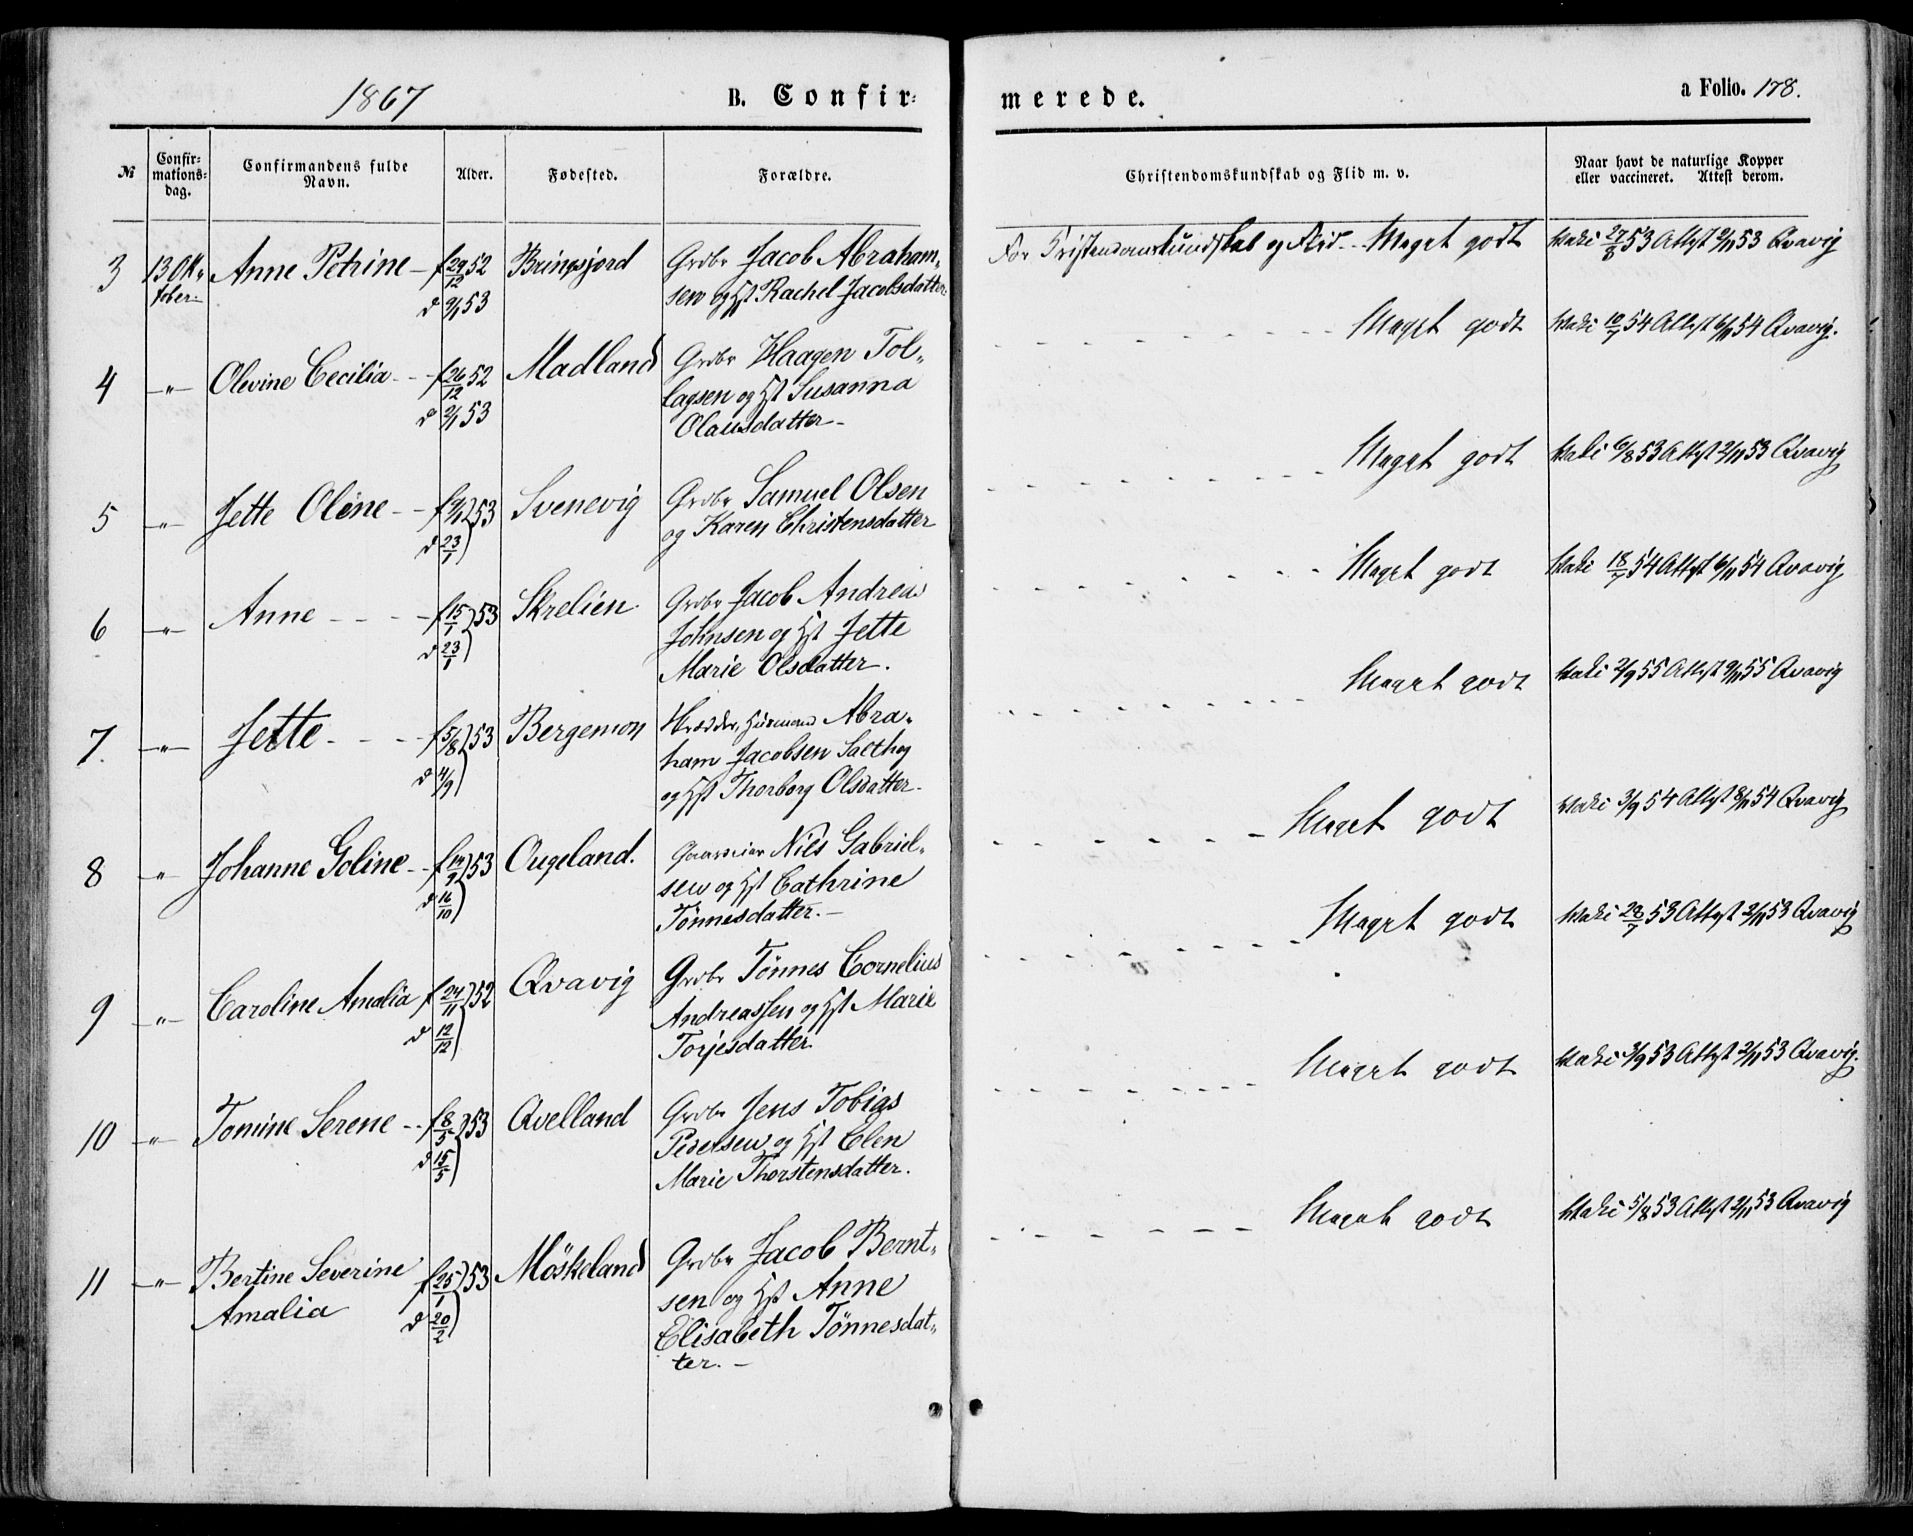 1867 B. Confir= merede. a Folio. 178.
№ Confir=mations=dag. Confirmandens fulde Navn. Alder. Fødested. Forældre. Christendomskundskab og Flid m. v. Naar havt de naturlige Kopper eller vaccineret. Attest derom.
3 13 Ok= Anne Petrine – f 29/12 52 Bringsjord Grdbr Jacob Abraham= For Kristendomskundskab og Flid -- Meget godt Vakc 27/8 53 Attest 2/11 53 Qvavig
tober d 9/1 53 sen og Hst Rachel Jacobsdatter
4 –"– Olevine Cecilia -- f 26/12 52 Madland Grdbr Haagen Tol= Meget godt Vakc 10/7 54 Attest 6/11 54 Qvavig.
d 2/1 53 lagsen og Hst Susanna
Olausdatter –
5 –"– Jette Oléne -- f 9/1 53 Svenevig Grdbr Samuel Olsen Meget godt Vakc 6/8 53 Attest 2/11 53 Qvavig
d 23/1 og Karen Christensdatter
6 –"– Anne - - - f 15/1 53 Skrelien Grdbr Jacob Andreas Meget godt Vakc 18/7 54 Attest 6/11 54 Qvavig
d 23/1 Johnsen og Hst Jette
Marie Olsdatter.
7. –"– Jette - - - f 5/8 53 Bergemon Husmand Abra= Meget godt Vakc 2/9 55 Attest 9/11 55 Qvavig
d 4/9 ham Jacobsen Salthog
og Hst Thorborg Olsdatter.
8 –"– Johanne Goline -- f 14/9 53 Ougeland. Nils Gabriel= Meget godt Vakc 3/9 54 Attest 8/11 54 Qvavig
d 16/10 sen og Hst Cathrine
Tönnesdatter. –
9 –"– Caroline Amalia f 24/11 52 Qvavig Grdbr Tönnes Cornelius Meget godt Vakc 28/7 53 Attest 2/11 53 Qvavig
d 12/12 Andreassen og Hst Marie
Torjesdatter
10 –"– Tomine Serene -- f 8/5 53 Qvelland Grdbr Jens Tobias Meget godt Vakc 3/9 53 Attest 2/11 53 Qvavig.
d 15/5 Pedersen og Hst Elen
Marie Thorstensdatter.
11 –"– Bertine Severine f 25/1 53 Möskeland Grdbr Jacob Bernt= Meget godt Vakc 5/8 53 Attest 2/11 53 Qvavig
Amalia d 20/2 sen og Hst Anne
Elisabeth Tönnesdat=
ter. –